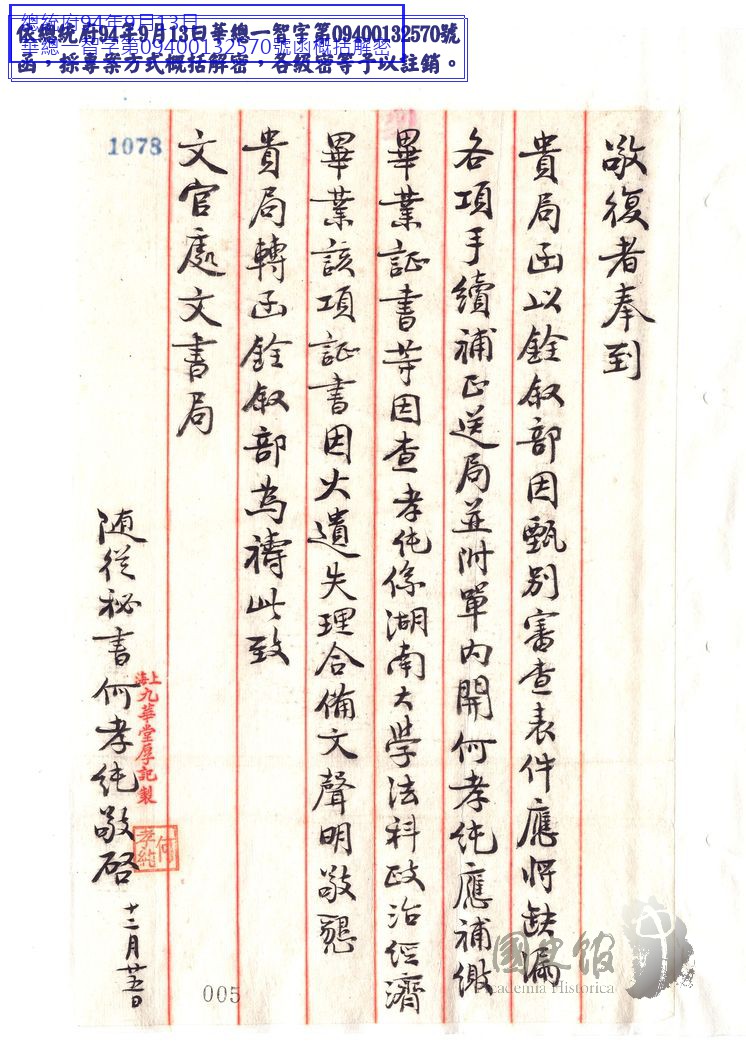 總統府94年9月13日
華總一智字第09400132570號函概括解密
依總統府94年9月13日華總一智字第09400132570號
函，採專案方式概括解密，各級密等予以註銷。
1078
敬復者奉到
貴局函以銓敘部因甄別審查表件應將缺漏
各項手續補正送局並附單內開何孝純應補繳
畢業証書等因查孝純係湖南大學法科政治經濟
畢業該項証書因火遺失理合備文聲明敬懇
貴局轉函銓敘部為禱此致
文官處文書局
随從秘書何孝純敬啓
十二月廿五日
上海九華堂厚記製
何孝純
國史館
Academia Historica
005